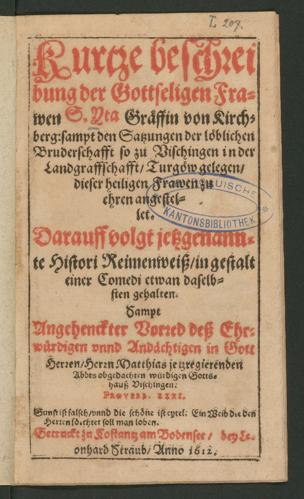 L 209.
Kurtze beschrei
bung der Gottseligen Fra-
wen S. Yta Gräffin von Kirch-
berg: sampt den Satzungen der löblichen
Bruderschafft so zu Vischingen in der
Landgraffschafft/ Turgöw gelegen/
dieser heiligen Frawen zu
ehren angestel-
let.
KANTONSBIBLIOTHEK
Darauff volgt jetzgenann-
te Histori Reimenweiß/ in gestalt
einer Comedi etwan daselb-
sten gehalten.
Sampt
Angehenckter Vorred deß Ehr-
würdigen vnnd Andächtigen in Gott
Herren/ Herrn Matthias jetzregierenden
Abbts obgedachten würdigen Gotts-
hauß Vischingen.
PROVERB. XXXI.
Gunst ist falsch/ vnnd die schöne ist eytel: Ein Weib die den
Herren förchtet soll man loben.
Getruckt zu Costantz am Bodensee/ bey Le-
onhard Straub/ Anno 1612.